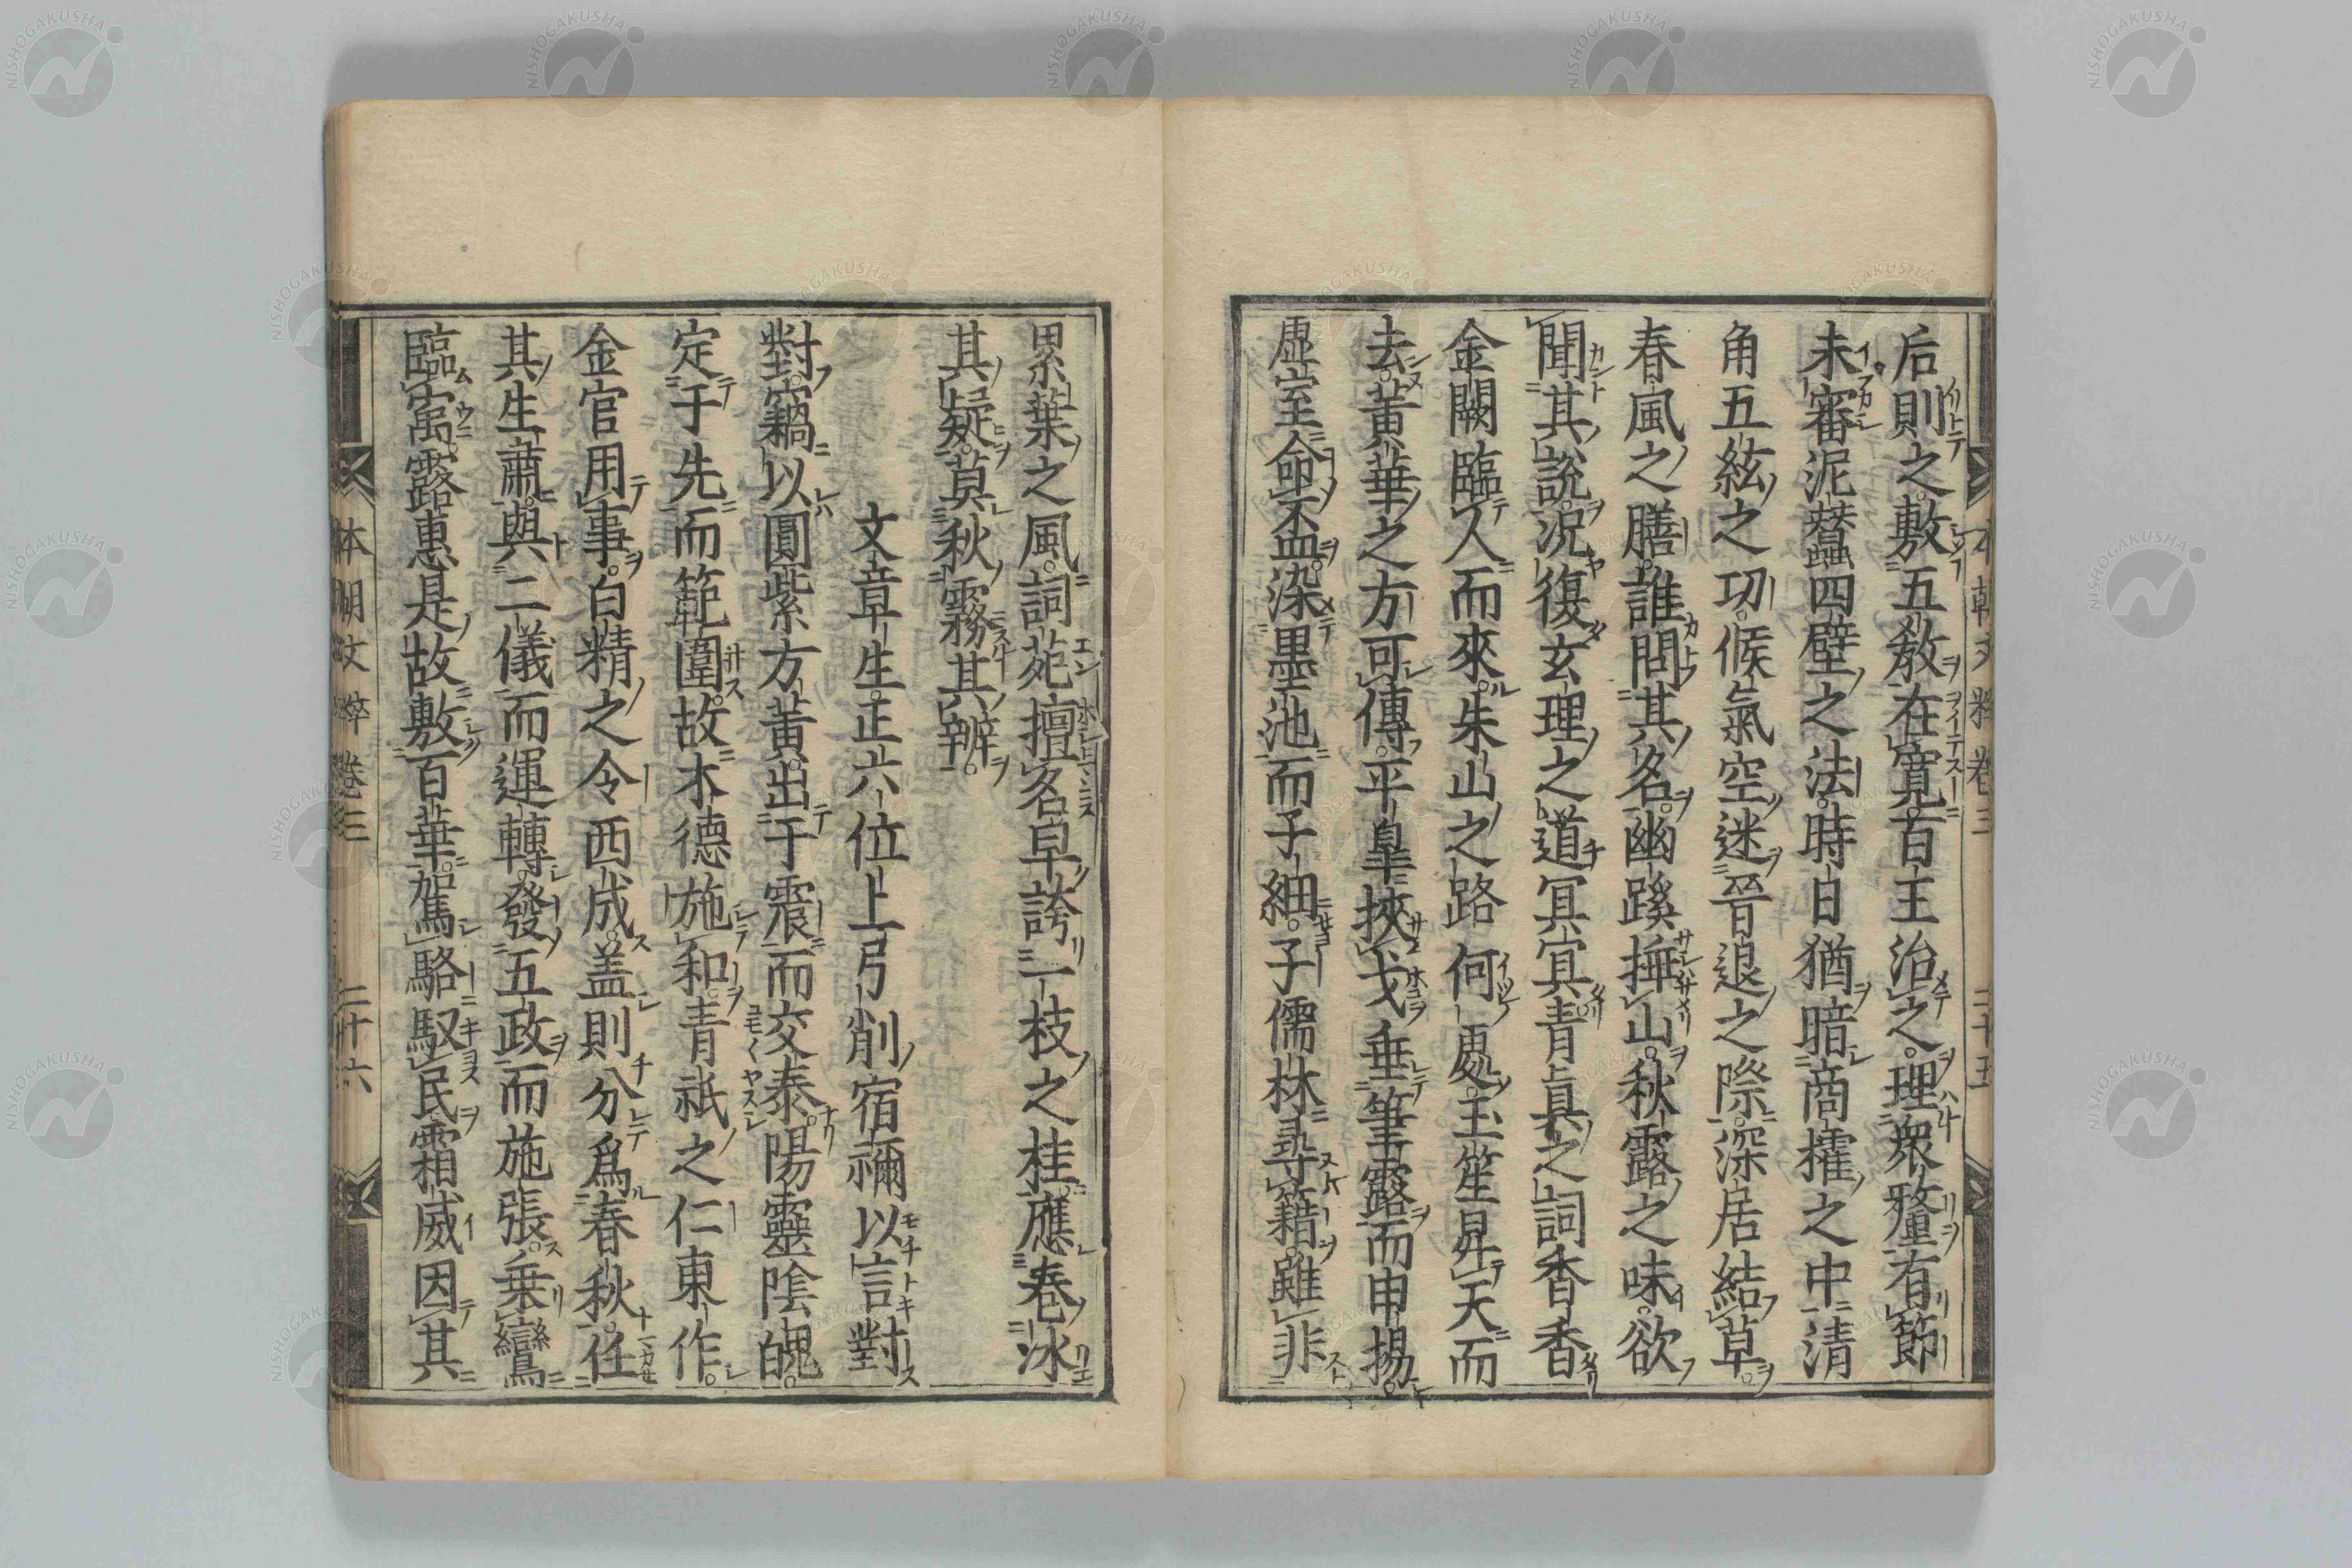 后則之敷五教在寬百王治之理衆釐有節
未審泥蠶四壁之法時日猶暗商搉之中清
角五絃之功候氣空迷晉退之際深居結草
春風之膳誰問其名幽蹊捶山秋露之味欲
聞其說況復玄理之道冥冥青眞之詞香香
金闕臨人而來朱山之路何處玉笙昇天而
去黃華之方可傳平皐挾戈垂筆露而申揚
虛室命盃染墨池而子細子儒林尋籍雖非
本朝文粹卷三 二十五
累葉之風詞苑擅名早誇一枝之桂應春冰
其疑莫秋霧其辨
文章生正六位上弓削宿禰以言對
對竊以圓紫方黃出于震而交泰陽靈陰魄
定于先而範圍故木德施和青祇之仁東作
金官用事白精之令西成盖則分爲春秋任
其生肅與二儀而運轉發五政而施張乗鸞
臨寓露惠是故敷百華駕駱馭民霜威因其
本朝文粹卷三 二十六
NISHOGAKUSHA